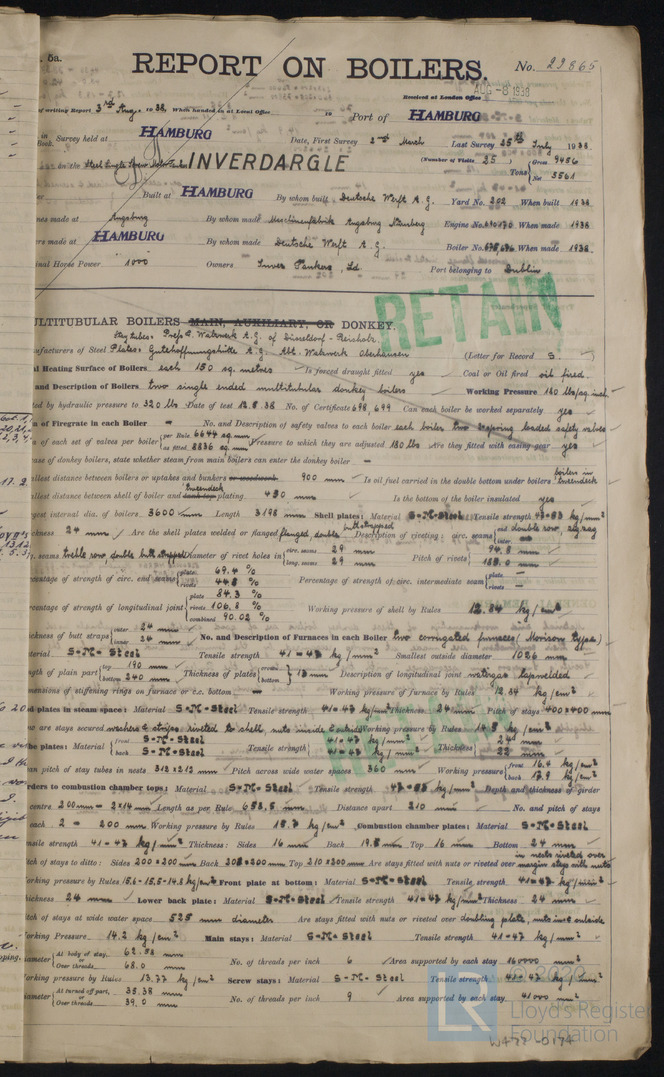 5a. REPORT ON BOILERS. No. 22865
Received at London Office
AUG -8 1938
of writing Report 3rd Aug. 1938 When handed in at Local Office 19 Port of HAMBURG
in Survey held at HAMBURG Date, First Survey 2nd March Last Survey 25th July 1938
Book. (Number of Visits 25) Gross 9456
on the Steel Single Screw Motor Tanker INVERDARGLE Tons Net 5561
Built at HAMBURG By whom built Deutsche Werft A.G. Yard No. 202 When built 1938
nes made at Augsburg By whom made Maschinenfabrik Augsburg Nürnberg Engine No. When made 1938
rs made at HAMBURG By whom made Deutsche Werft A.G. Boiler No. When made 1938
inal Horse Power 1000 Owners Inver Tankers, Ltd Port belonging to Dublin
RETAIN
ULTITUBULAR BOILERS MAIN, AUXILIARY, OR DONKEY.
Stay tubes: Press & Walzwerk A.G. of Düsseldorf-Reisholz.
nufacturers of Steel Plates: Gutehoffnungshütte A.G. Abt. Walzwerk Oberhausen (Letter for Record S.
al Heating Surface of Boilers each 150 sq. metres Is forced draught fitted yes Coal or Oil fired oil fired
and Description of Boilers two single ended multitubular donkey boilers Working Pressure 140 lbs/sq.inch.
ted by hydraulic pressure to 320 lbs Date of test 12.5.38 No. of Certificate 698, 699 Can each boiler be worked separately yes
a of Firegrate in each Boiler – No. and Description of safety valves to each boiler each boiler two spring loaded safety valves
a of each set of valves per boiler per Rule 6644 sq.mm as fitted 8836 sq.mm Pressure to which they are adjusted 180 lbs Are they fitted with easing gear yes
ase of donkey boilers, state whether steam from main boilers can enter the donkey boiler –
allest distance between boilers or uptakes and bunkers or woodwork 900 mm Is oil fuel carried in the double bottom under boilers boilers in tweendeck
allest distance between shell of boiler and tank top plating tweendeck 430 mm Is the bottom of the boiler insulated yes
gest internal dia. of boilers 3600 mm Length 3198 mm Shell plates: Material S-M-Steel Tensile strength 47-53 kg/mm²
ckness 24 mm Are the shell plates welded or flanged flanged, double butt strapped Description of riveting: circ. seams end double row, zig zag inter –
g. seams treble row, double butt strapped Diameter of rivet holes in circ. seams 29 mm long. seams 29 mm Pitch of rivets 94.8 mm 185.0 mm
centage of strength of circ. end seams plate 69.4 % rivets 44.8 % Percentage of strength of circ. intermediate seam plate – rivets –
rcentage of strength of longitudinal joint plate 84.3 % rivets 106.8 % combined 90.02 % Working pressure of shell by Rules 12.84 kg/cm²
ickness of butt straps outer 24 mm inner 24 mm No. and Description of Furnaces in each Boiler two corrugated furnaces (Morison type)
terial S-M-Steel Tensile strength 41-47 kg/mm² Smallest outside diameter 1026 mm
ngth of plain part top 190 mm bottom 240 mm Thickness of plates crown bottom 13 mm Description of longitudinal joint watergas lapwelded
mensions of stiffening rings on furnace or c.c. bottom – Working pressure of furnace by Rules 12.64 kg/cm²
d plates in steam space: Material S-M-Steel Tensile strength 41-47 kg/mm² Thickness 24 mm Pitch of stays 400x400 mm
ow are stays secured washers & stripes riveted to shell, nuts inside & outside Working pressure by Rules 14.5 kg/cm²
be plates: Material front S-M-Steel back S-M-Steel Tensile strength 41-47 kg/mm² 41-47 kg/mm² Thickness 24 mm 22 mm
ean pitch of stay tubes in nests 312x212 mm Pitch across wide water spaces 360 mm Working pressure front 16.4 kg/cm² back 17.9 kg/cm²
rders to combustion chamber tops: Material S-M-Steel Tensile strength 47-53 kg/mm² Depth and thickness of girder
centre 200 mm – 2x14 mm Length as per Rule 658.5 mm Distance apart 210 mm No. and pitch of stays
each 2 – 200 mm Working pressure by Rules 15.7 kg/cm² Combustion chamber plates: Material S-M-Steel
nsile strength 41-47 kg/mm² Thickness: Sides 16 mm Back 19.5 mm Top 16 mm Bottom 24 mm
in nests riveted over
tch of stays to ditto: Sides 200x200 mm Back 208x200 mm Top 210x200 mm Are stays fitted with nuts or riveted over margin stays with nuts
orking pressure by Rules 15.6-15.5-14.8 kg/cm² Front plate at bottom: Material S-M-Steel Tensile strength 41-47 kg/mm²
hickness 24 mm Lower back plate: Material S-M-Steel Tensile strength 41-47 kg/mm² Thickness 24 mm
itch of stays at wide water space 525 mm diameter Are stays fitted with nuts or riveted over doubling plate, nuts in & outside
orking Pressure 14.2 kg/cm² Main stays: Material S-M-Steel Tensile strength 41-47 kg/mm²
iameter At body of stay, 62.58 mm or Over threads 68.0 mm No. of threads per inch 6 Area supported by each stay 160000 mm²
orking pressure by Rules 13.77 kg/cm² Screw stays: Material S-M-Steel Tensile strength 41-47 kg/mm²
iameter At turned off part, 35.38 mm or Over threads 39.0 mm No. of threads per inch 9 Area supported by each stay 41000 mm²
© 2020
LR Lloyd's Register
Foundation
W477-0174